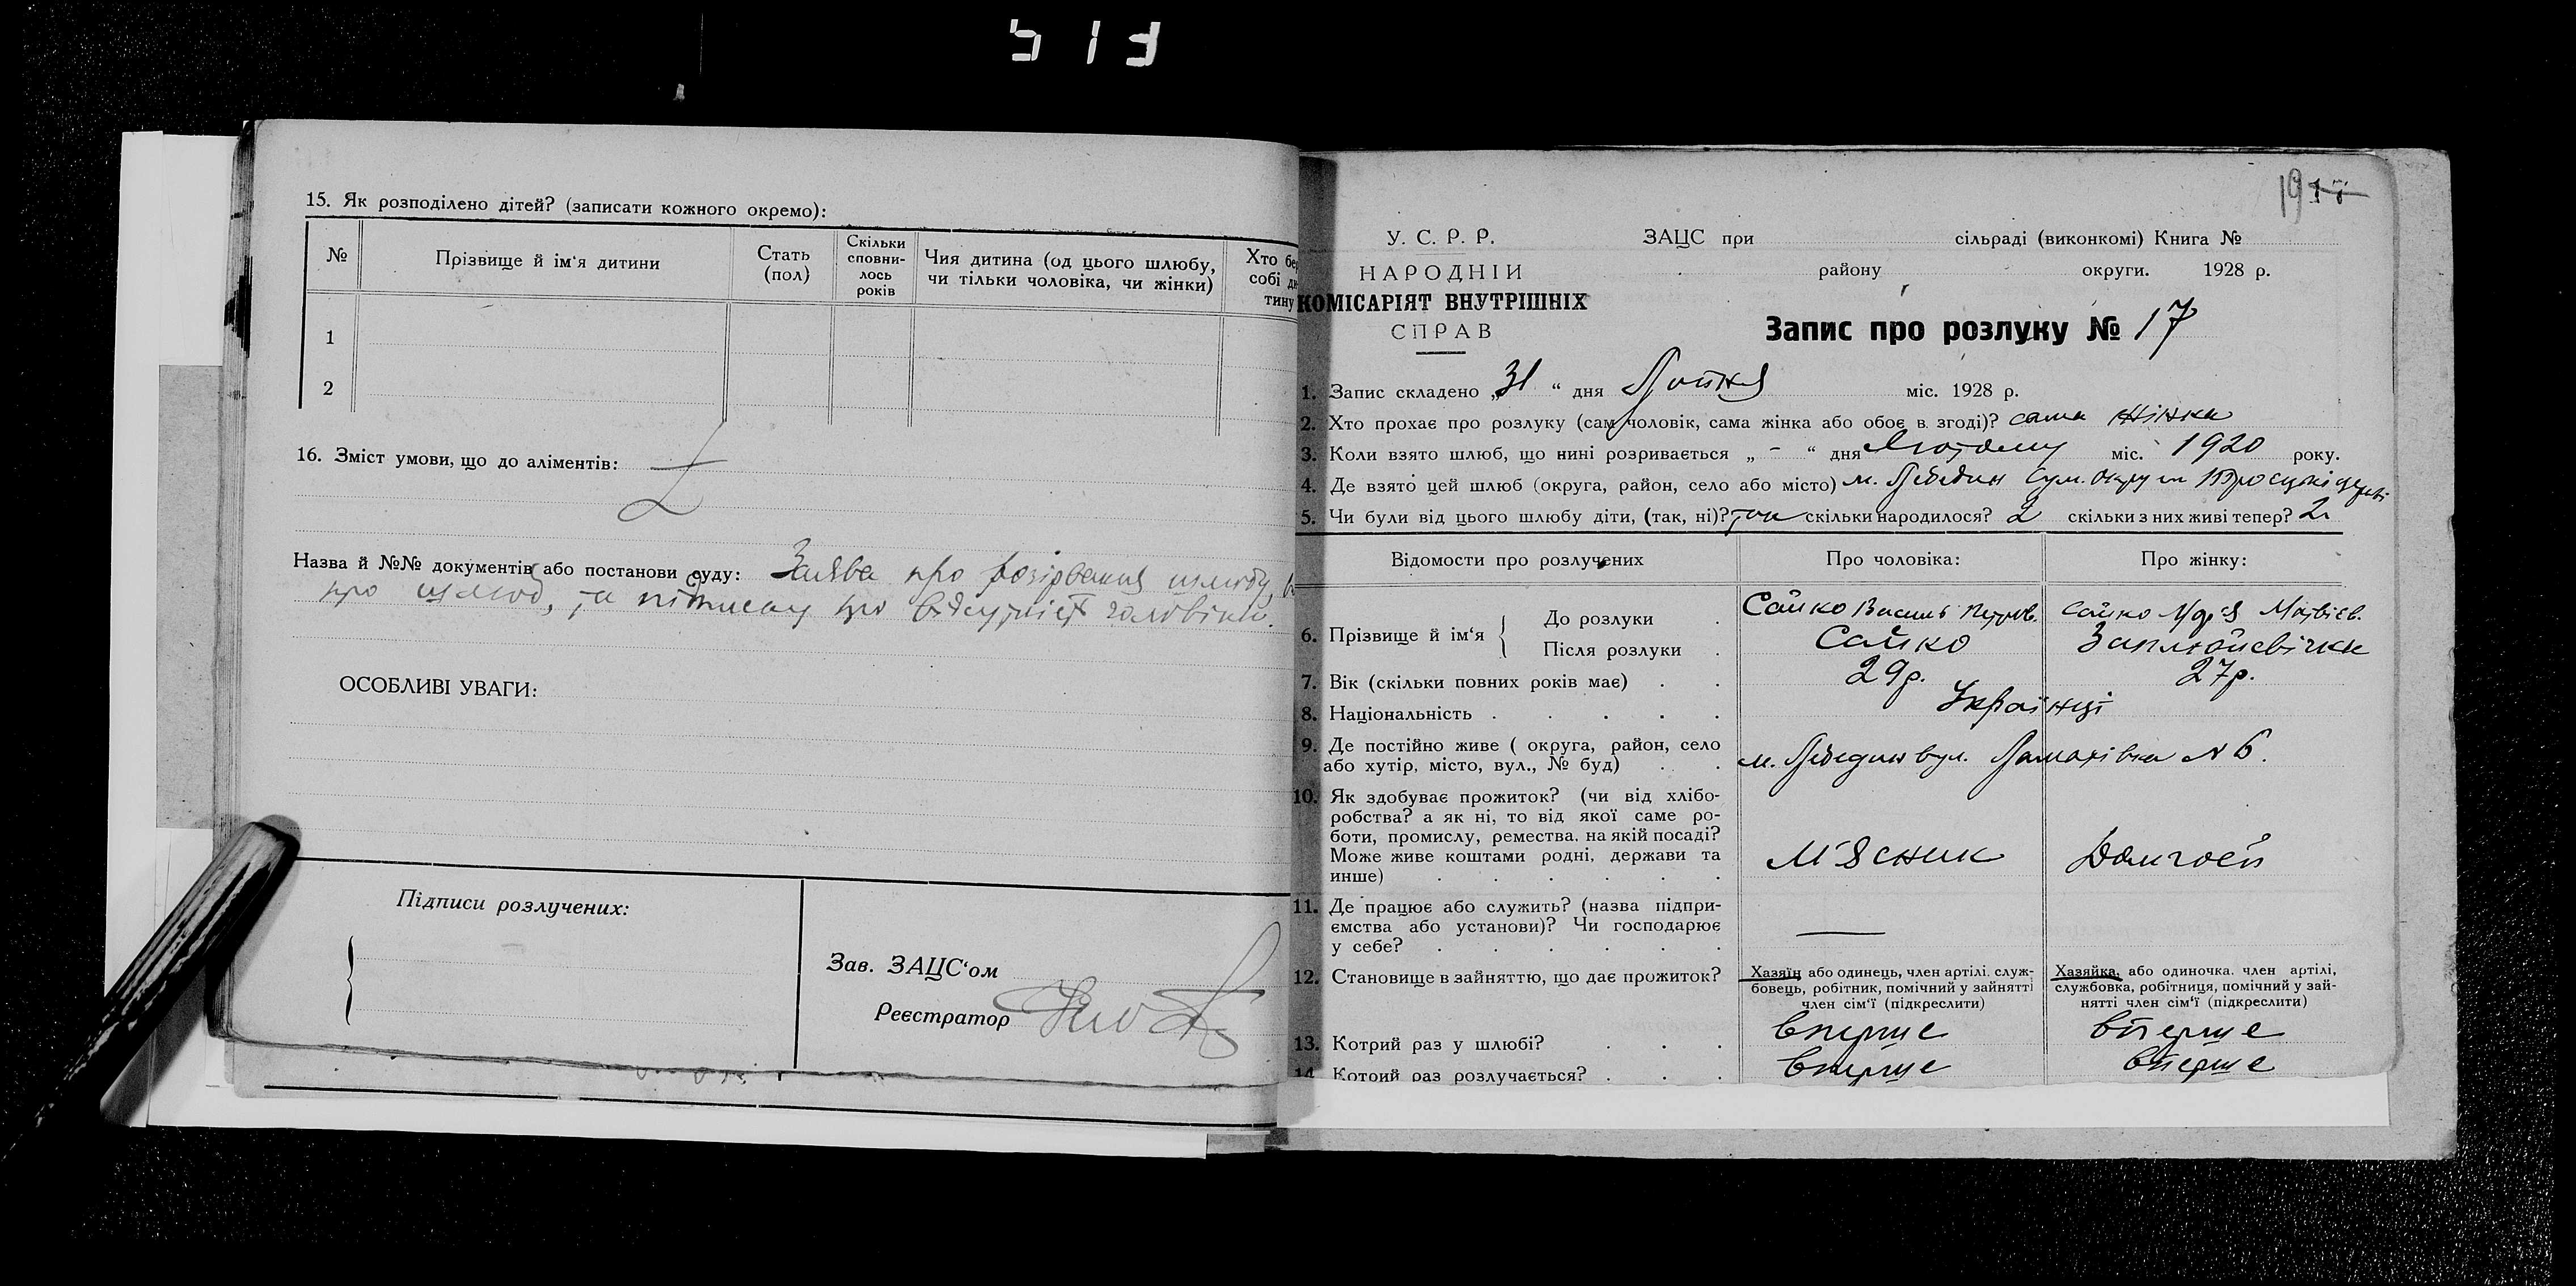 15. Як розподілено дітей? (записати кожного окремо):
№ Прізвище й ім'я дитини Стать (пол) Скільки сповнилось років Чия дитина (од цього шлюбу, чи тільки чоловіка, чи жінки) Хто бер собі ди тину
1
2
16. Зміст умови, що до аліментів:
Назва й №№ документів або постанови суду: Заява про розірвання шлюбу,
про шлюб, та підписку про відсутність чоловіка.
ОСОБЛИВІ УВАГИ:
Підписи розлучених:
Зав. ЗАЦС'ом
Реєстратор
19
У. С. Р. Р.
НАРОДНІЙ
КОМІСАРІЯТ ВНУТРІШНІХ
СПРАВ
ЗАЦС при сільраді (виконкомі) Книга №
району округи. 1928 р.
Запис про розлуку № 17
1. Запис складено „31" дня Липня міс. 1928 р.
2. Хто прохає про розлуку (сам чоловік, сама жінка або обоє в згоді)? сама жінка
3. Коли взято шлюб, що нині розривається „ - " дня Лютому міс. 1920 року.
4. Де взято цей шлюб (округа, район, село або місто) м. Лебедин Сум. округи Троїцькі церкві
5. Чи були від цього шлюбу діти, (так, ні)? так скільки народилося? 2 скільки з них живі тепер? 2
Відомости про розлучених Про чоловіка: Про жінку:
6. Прізвище й ім'я { До розлуки . Сайко Василь Петров. Сайко Матвієв.
Після розлуки . Сайко Заплюйсвічка
7. Вік (скільки повних років має) . . 29р. 27р.
8. Національність . . . . . Українці
9. Де постійно живе ( округа, район, село
або хутір, місто, вул., № буд) . . м. Лебедин вул. № 6.
10. Як здобуває прожиток? (чи від хлібо-
робства? а як ні, то від якої саме ро-
боти, промислу, ремества. на якій посаді?
Може живе коштами родні, держави та
инше) . . . . . . М'ясник Домгосп
11. Де працює або служить? (назва підпри-
ємства або установи)? Чи господарює
у себе? . . . . . . —
12. Становище в зайняттю, що дає прожиток?
Хазяїн або одинець, член артілі. служ-
бовець, робітник, помічний у зайнятті
член сім'ї (підкреслити)
Хазяйка, або одиночка. член артілі,
службовка, робітниця, помічний у зай-
нятті член сім'ї (підкреслити)
13. Котрий раз у шлюбі? . . . вперше вперше
14. Котрий раз розлучається? . . . вперше вперше